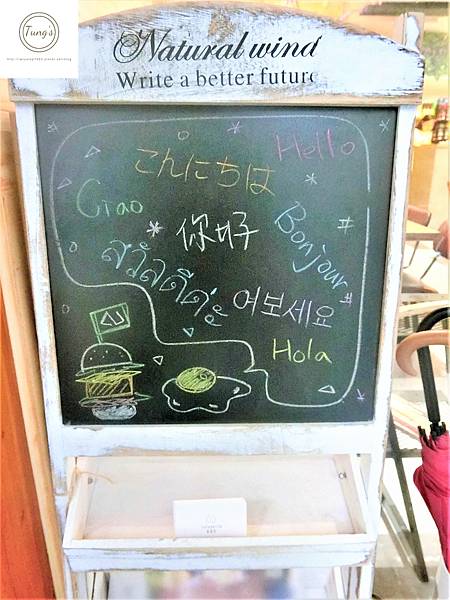 Tung's
Natural wind
Write a better future
Hello
こんにちは
Ciao
你好
Bonjour
สวัสดีค่ะ
여보세요
Hola